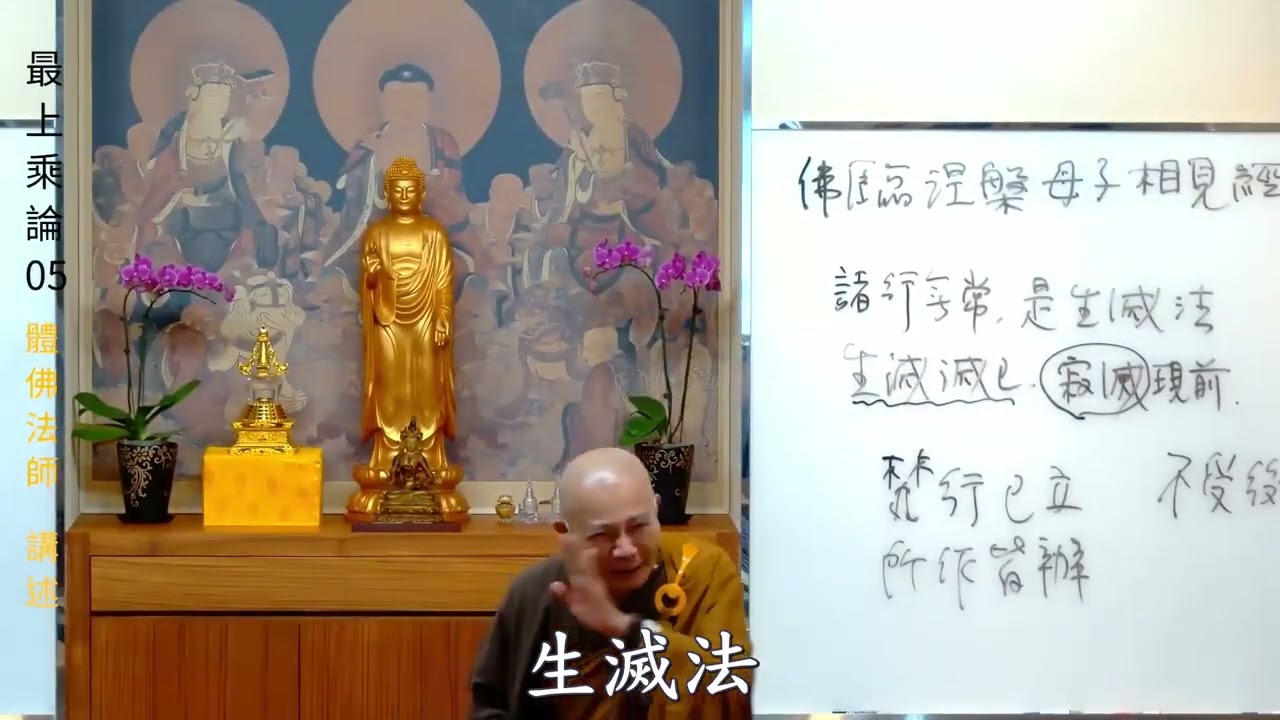 最上乘論05 體佛法師 講述
佛臨涅槃母子相見經
諸行無常.是生滅法
生滅滅已.寂滅現前.
梵行已立 不受後
所作皆辦
生滅法